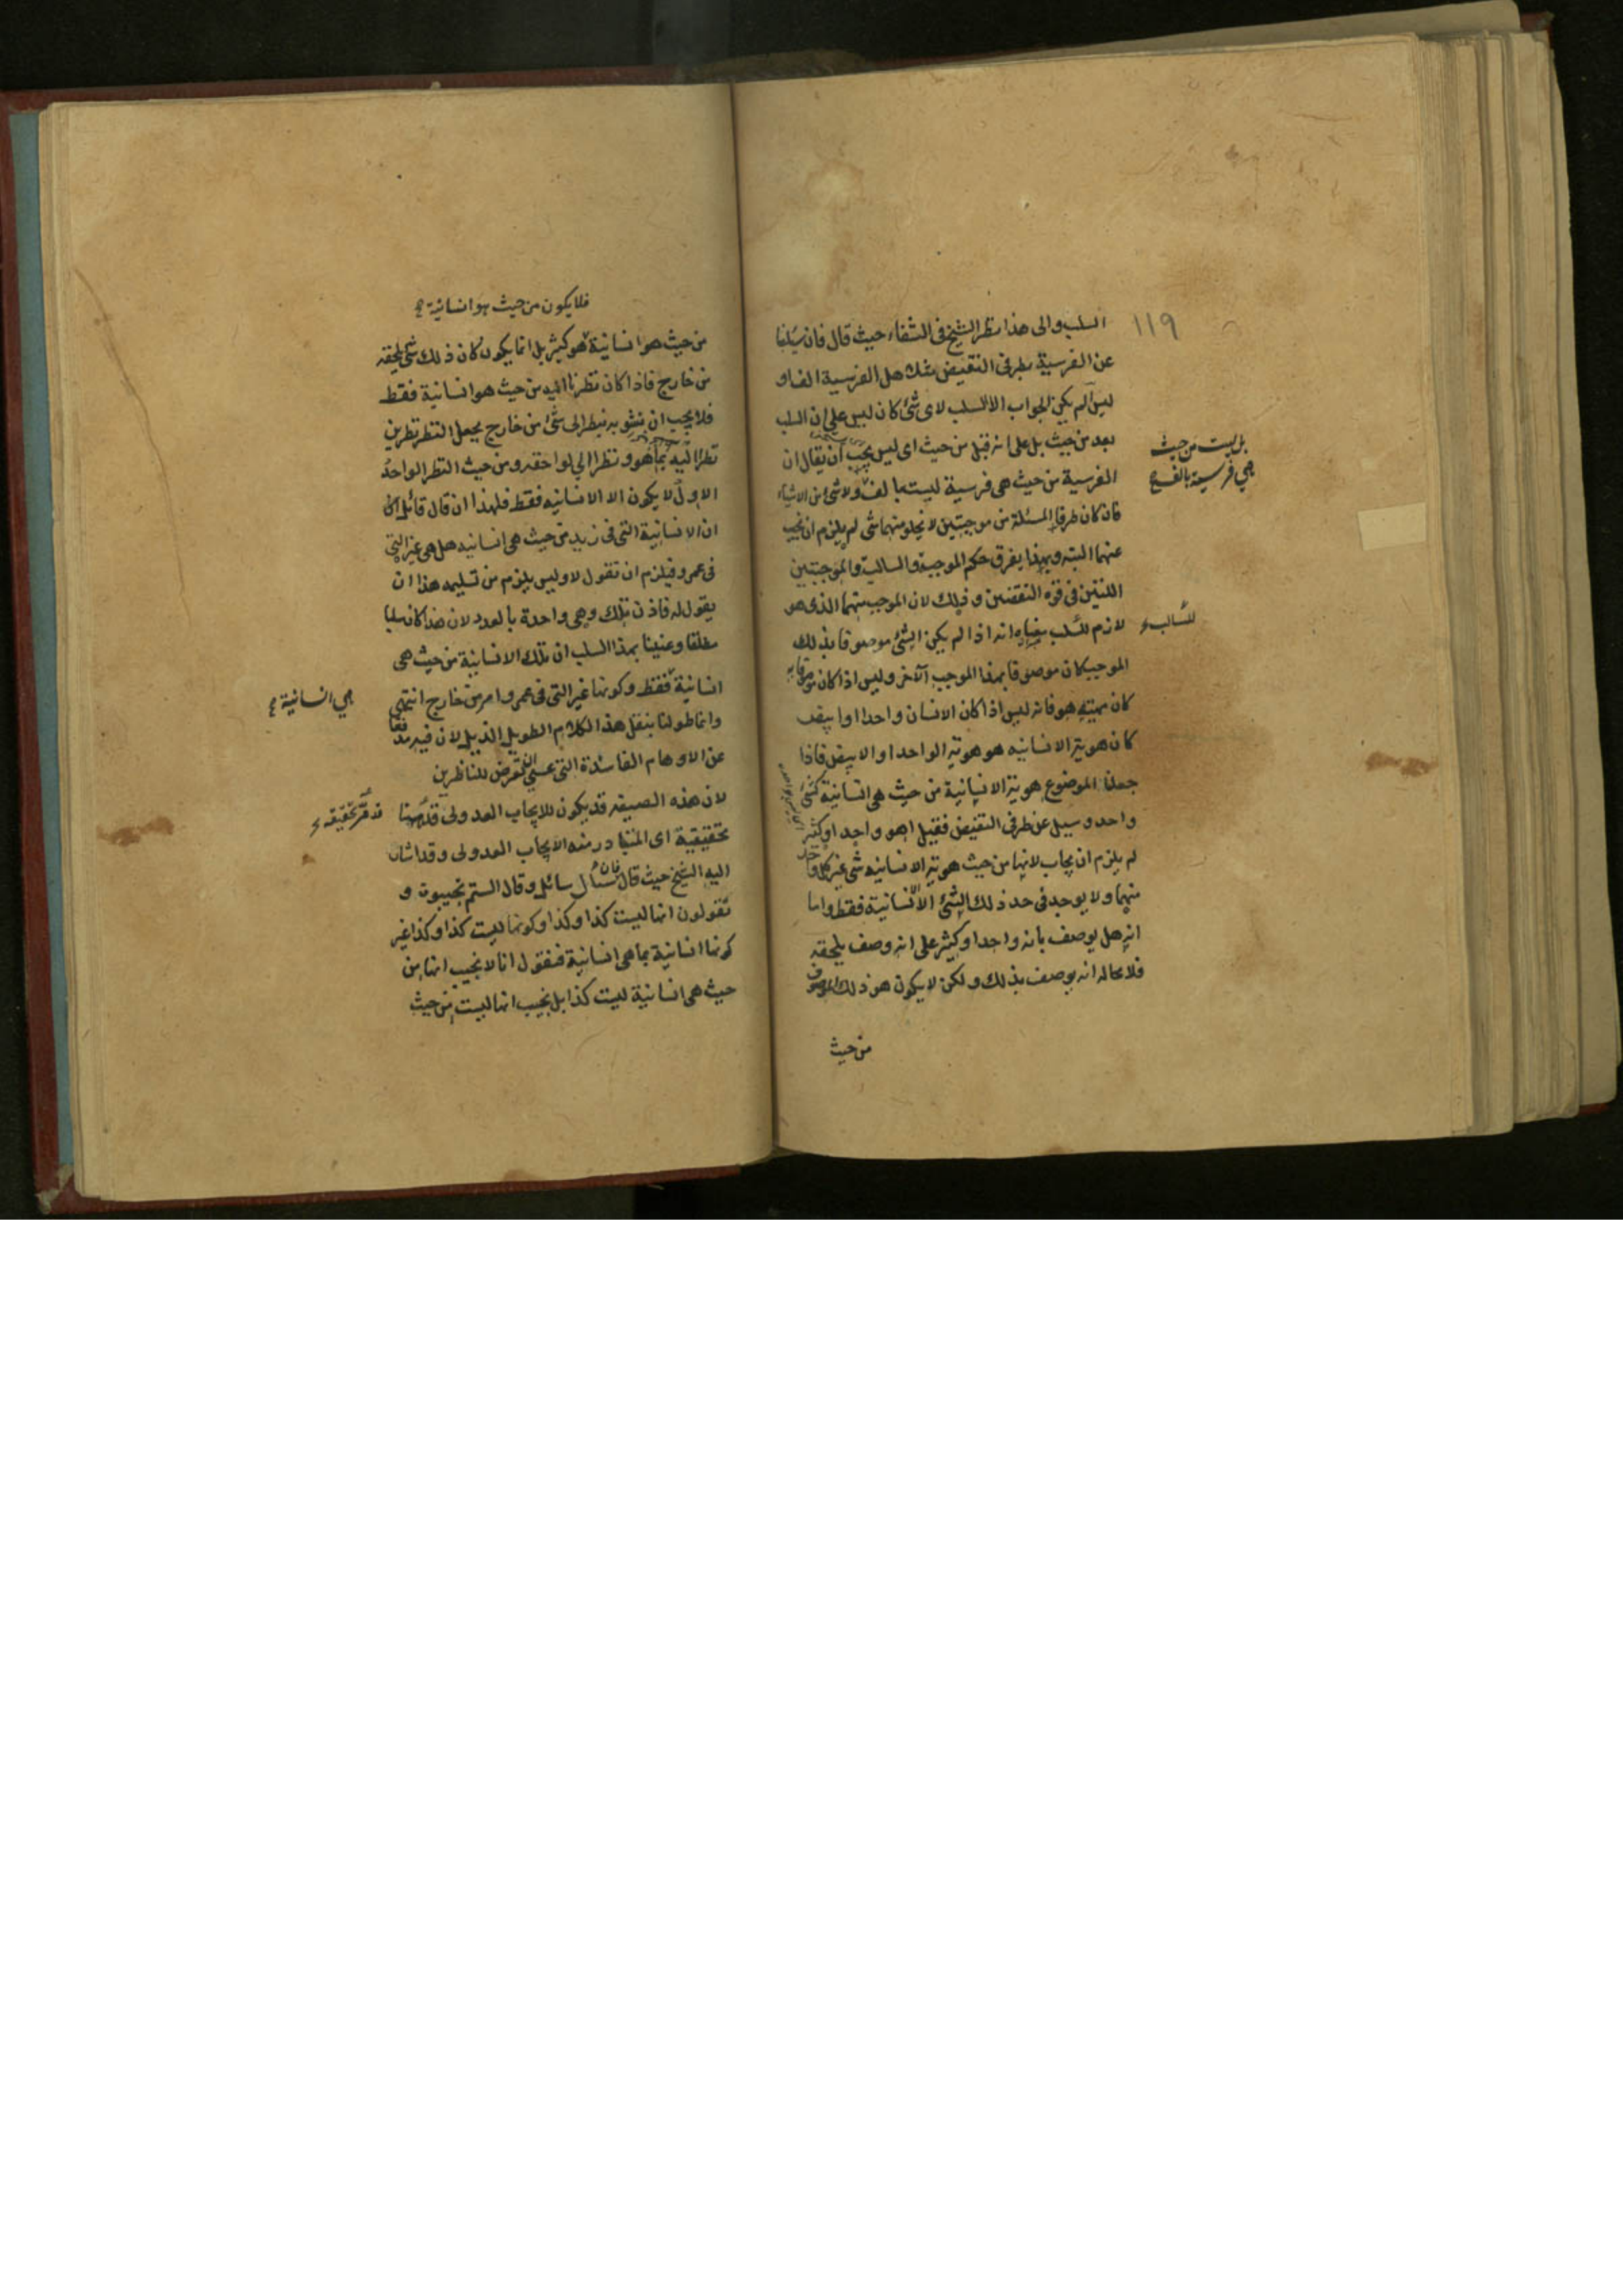 ١١٩
السلب والى هذا نظر الشيخ فى الشفاء حيث قال فان سئلنا
عن الفرسية بطرفى النقيض مثلا هل الفرسية الف او
ليس الم يكن الجواب الا السلب لاى شئ كان ليس على ان السلب
بعد من حيث بل على انه قبل من حيث اى ليس يجب ان يقال ان
الفرسية من حيث هى فرسية ليست بالف ولا شئ من الاشياء
بل ليست من حيث
هي فرسية بالف
فان كان طرفا المسئلة من موجبتين لا يخلو منهما شى لم يلزم ان نجيب
عنهما البته وبهذا يفرق حكم الموجبة والسالبة والموجبتين
اللتين فى قوة النقضين وذلك لان الموجب منهما الذى هو
لازم للسلب معناه انه اذا لم يكن الشئ موصوفا بذلك
للسالب
الموجب كان موصوفا بهذا الموجب الآخر وليس اذا كان موصوفا به
كان مهيته هو فانه ليس اذا كان الانسان واحدا او ابيض
كان هوية الانسانيه هو هوية الواحد او الابيض فاذا
جعلنا الموضوع هوية الانسانية من حيث هى انسانية كشئ
واحد وسئل عن طرفى النقيض فقيل اهو واحد او كثير
لم يلزم ان يجاب لانها من حيث هوية الانسانيه شى غير كل واحد
منهما ولا يوجد فى حد ذلك الشئ الا الانسانية فقط واما
انه هل يوصف بانه واحد او كثير على انه وصف يلحقه
فلا محاله انه يوصف بذلك ولكن لا يكون هو ذلك الموصوف
من حيث
فلا يكون من حيث هو انسانية
من حيث هو انسانية هو كثير بل انما يكون كان ذلك شئ يلحقه
من خارج فاذا كان نظرنا اليه من حيث هو انسانية فقط
فلا يجب ان نشوبه بنظر الى شئ من خارج يجعل النظر نظرين
نظرا اليه بما هو ونظرا الى لواحقه ومن حيث النظر الواحد
الاول لا يكون الا الانسانيه فقط فلهذا ان قال قائل
ان الانسانية التى فى زيد من حيث هى انسانيه هل هى غير التى
فى عمرو فيلزم ان نقول لا وليس يلزم من تسليمه هذا ان
يقول له فاذن تلك وهى واحدة بالعدد لان هذا كان سلبا
مطلقا وعنينا بهذا السلب ان تلك الانسانية من حيث هى
انسانية فقط وكونها غير التى فى عمرو امر من خارج انتهى
هي انسانية
وانما طولنا بنقل هذا الكلام الطويل الذيل لان فيه نفعا
عن الاوهام الفاسدة التى عسى ان تعرض للناظرين
لان هذه الصيغه قد يكون للايجاب العدولى
قد مر تحقيقه
تحقيقية اى المتبادر منه الايجاب العدولى وقد اشار
اليه الشيخ حيث قال فان سأل سائل وقال الستم تجيبون و
تقولون انها ليست كذا وكذا وكونها ليست كذا وكذا غير
كونها انسانية بما هى انسانية فنقول انا لا نجيب انها من
حيث هى انسانية ليست كذا بل نجيب انها ليست من حيث